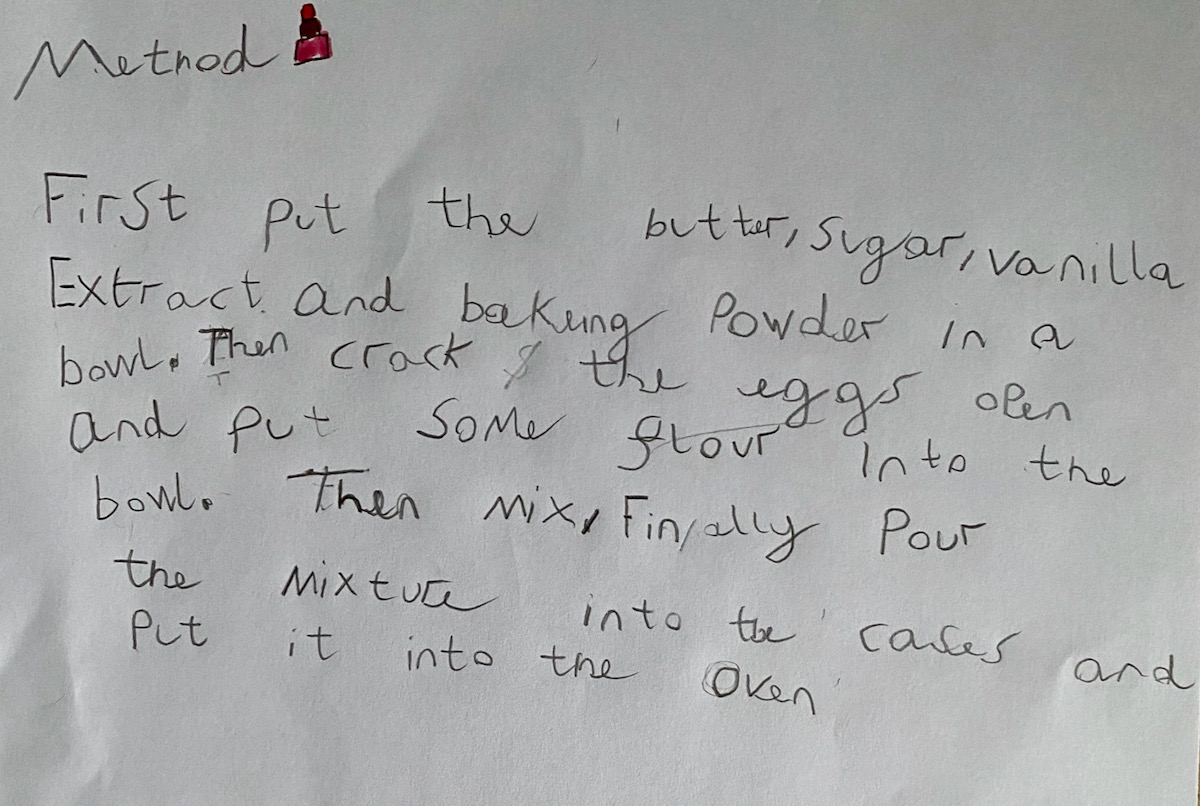 Method
First put the butter, sugar, vanilla
Extract and bakeing Powder in a
bowl. Then crack the eggs open
and put some flour into the
bowl. Then mix, Finally Pour
the mixture into the cases and
Put it into the oven